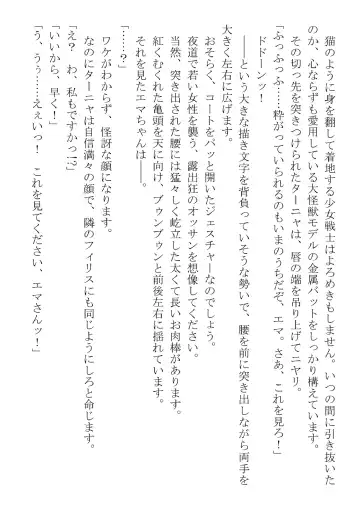 猫のように身を翻して着地する少女戦士はよろめきもしません。いつの間に引き抜いた
のか、心ならずも愛用している大怪獣モデルの金属バットをしっかり構えています。
その切っ先を突きつけられたターニャは、唇の端を上げてニヤリ。
「ふっふっふ……粋がっていられるのもいまのうちだぞ、エマ。さあ、これを見ろ！」
ドドーンッ！
――という大きな描き文字を背負っていそうな勢いで、腰を前に突き出しながら両手を
大きく左右に広げます。
おそらく、コートをパッと開いたジェスチャーなのでしょう。
夜道で若い女性を襲う、露出狂のオッサンを想像してください。
当然、突き出された腰には猛々しく屹立した太くて長いお肉棒があります。
紅くむくれた亀頭を天に向け、ブゥンブゥンと前後左右に揺れています。
それを見たエマちゃんは――。
「……？」
ワケがわからず、怪訝な顔になります。
なのにターニャは自信満々の顔で、隣のフィリスにも同じようにしろと命じます。
「え？　わ、私もですかっ!?」
「いいから、早く！」
「う、うぅ……えぇいっ！　これを見てください、エマさんッ！」